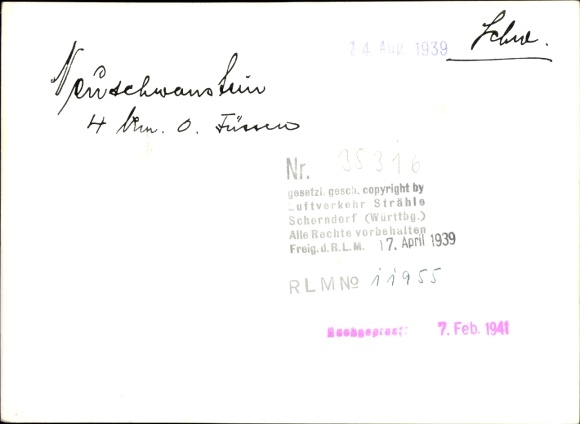 24 Aug. 1939
Schw.
Neuschwanstein
4 km. o. Füssen
Nr. 35316
gesetzl. gesch. copyright by
Luftverkehr Strähle
Schorndorf (Württbg.)
Alle Rechte vorbehalten
Freig. d. R.L.M. 17. April 1939
RLM No 11955
Nachgeprüft: 7. Feb. 1941